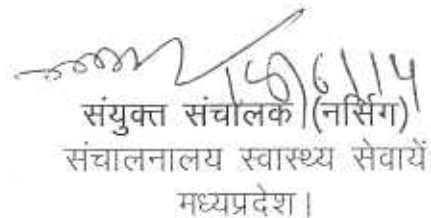 संयुक्त संचालक (नर्सिंग)
संचालनालय स्वास्थ्य सेवायें
मध्यप्रदेश।